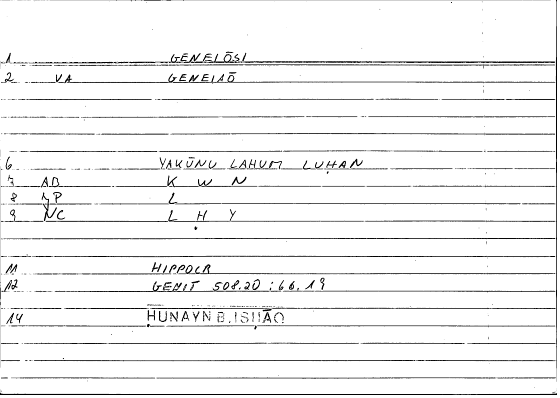 1 GENEIŌSI
2 VA GENEIAŌ
6 YAKŪNU LAHUM LUḤAN
7 AB K W N
8 ȷP L
9 NC L Ḥ Y
11 HIPPOCR
12 GENIT 508.20 : 66.19
14 ḤUNAYN B. ISḤĀQ